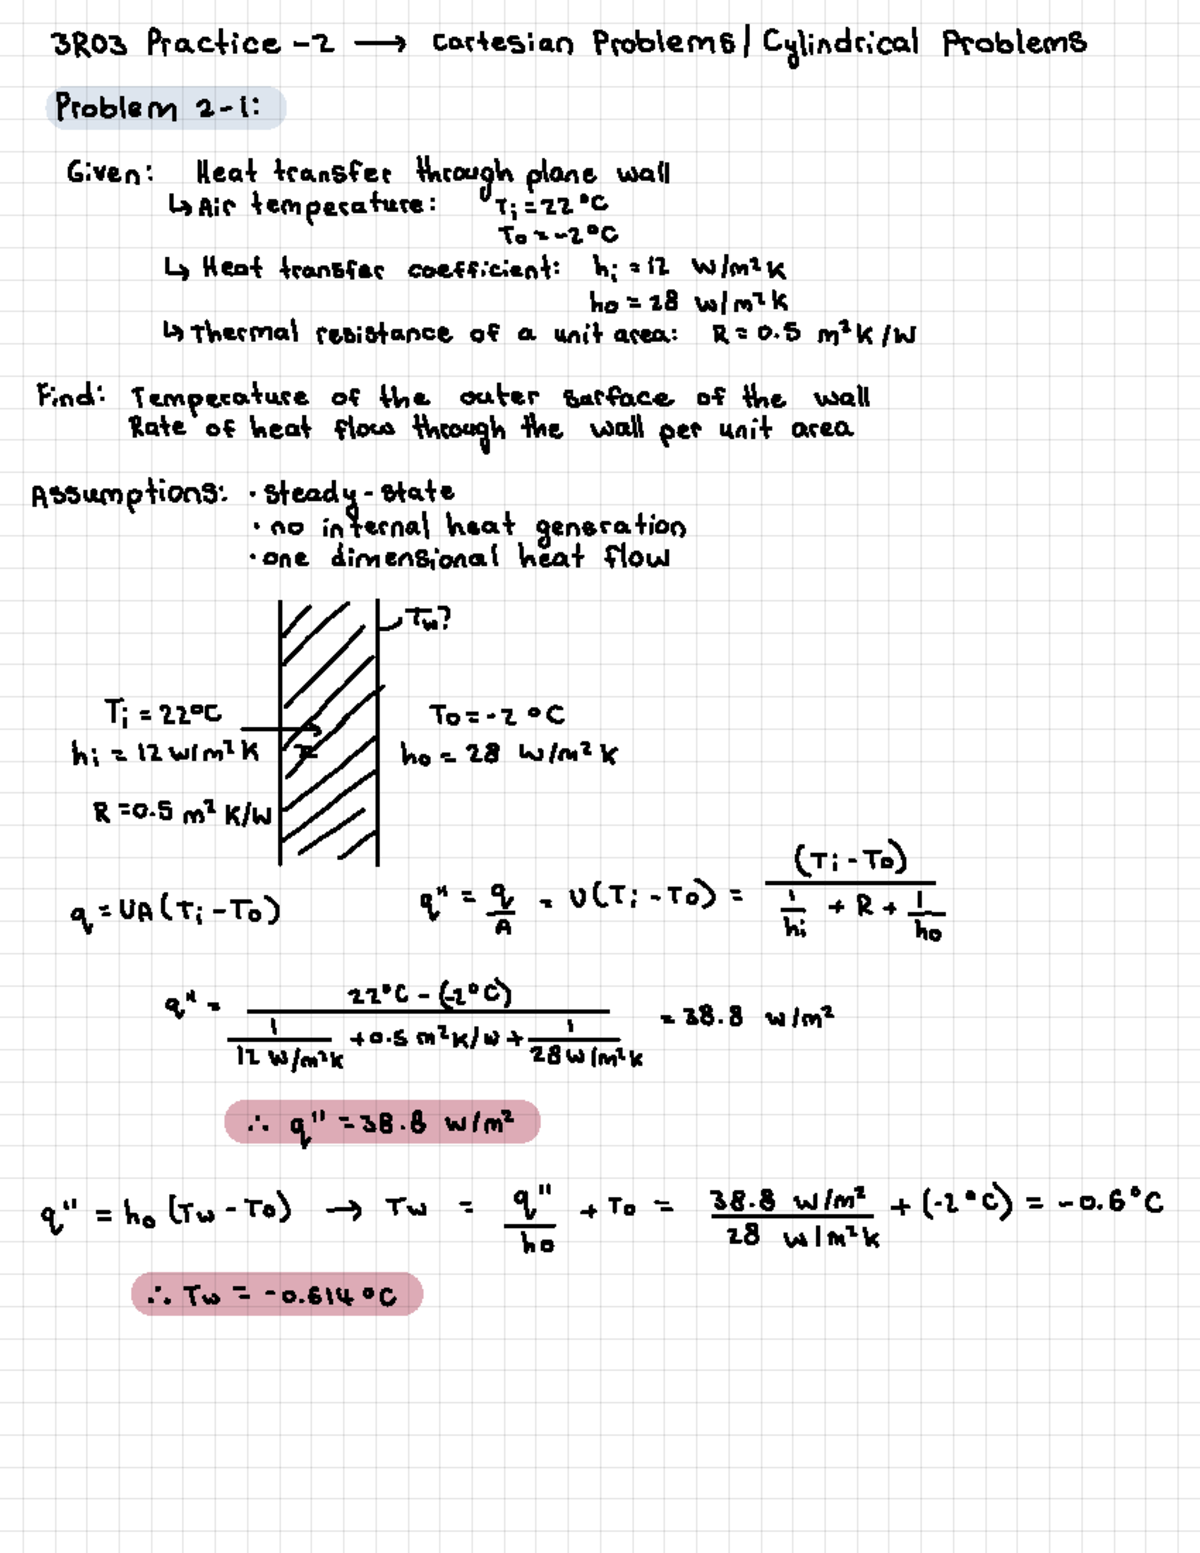 3R03 Practice -2 → Cartesian Problems/Cylindrical Problems
Problem 2-1:
Given: Heat transfer through plane wall
↳ Air temperature: Ti = 22°C
To = -2°C
↳ Heat transfer coefficient: hi = 12 W/m²K
ho = 28 W/m²K
↳ Thermal resistance of a unit area: R = 0.5 m²K/W
Find: Temperature of the outer surface of the wall
Rate of heat flow through the wall per unit area
Assumptions: • steady-state
• no internal heat generation
• one dimensional heat flow
Tw?
Ti = 22°C
To = -2°C
hi = 12 W/m²K
ho = 28 W/m²K
R = 0.5 m²K/W
q = UA(Ti - To)
q" = q/A = U(Ti - To) = (Ti - To) / (1/hi + R + 1/ho)
q" = 22°C - (-2°C) / (1/12 W/m²K + 0.5 m²K/W + 1/28 W/m²K) = 38.8 W/m²
∴ q" = 38.8 W/m²
q" = ho (Tw - To) → Tw = q"/ho + To = 38.8 W/m² / 28 W/m²K + (-2°C) = -0.6°C
∴ Tw = -0.614°C